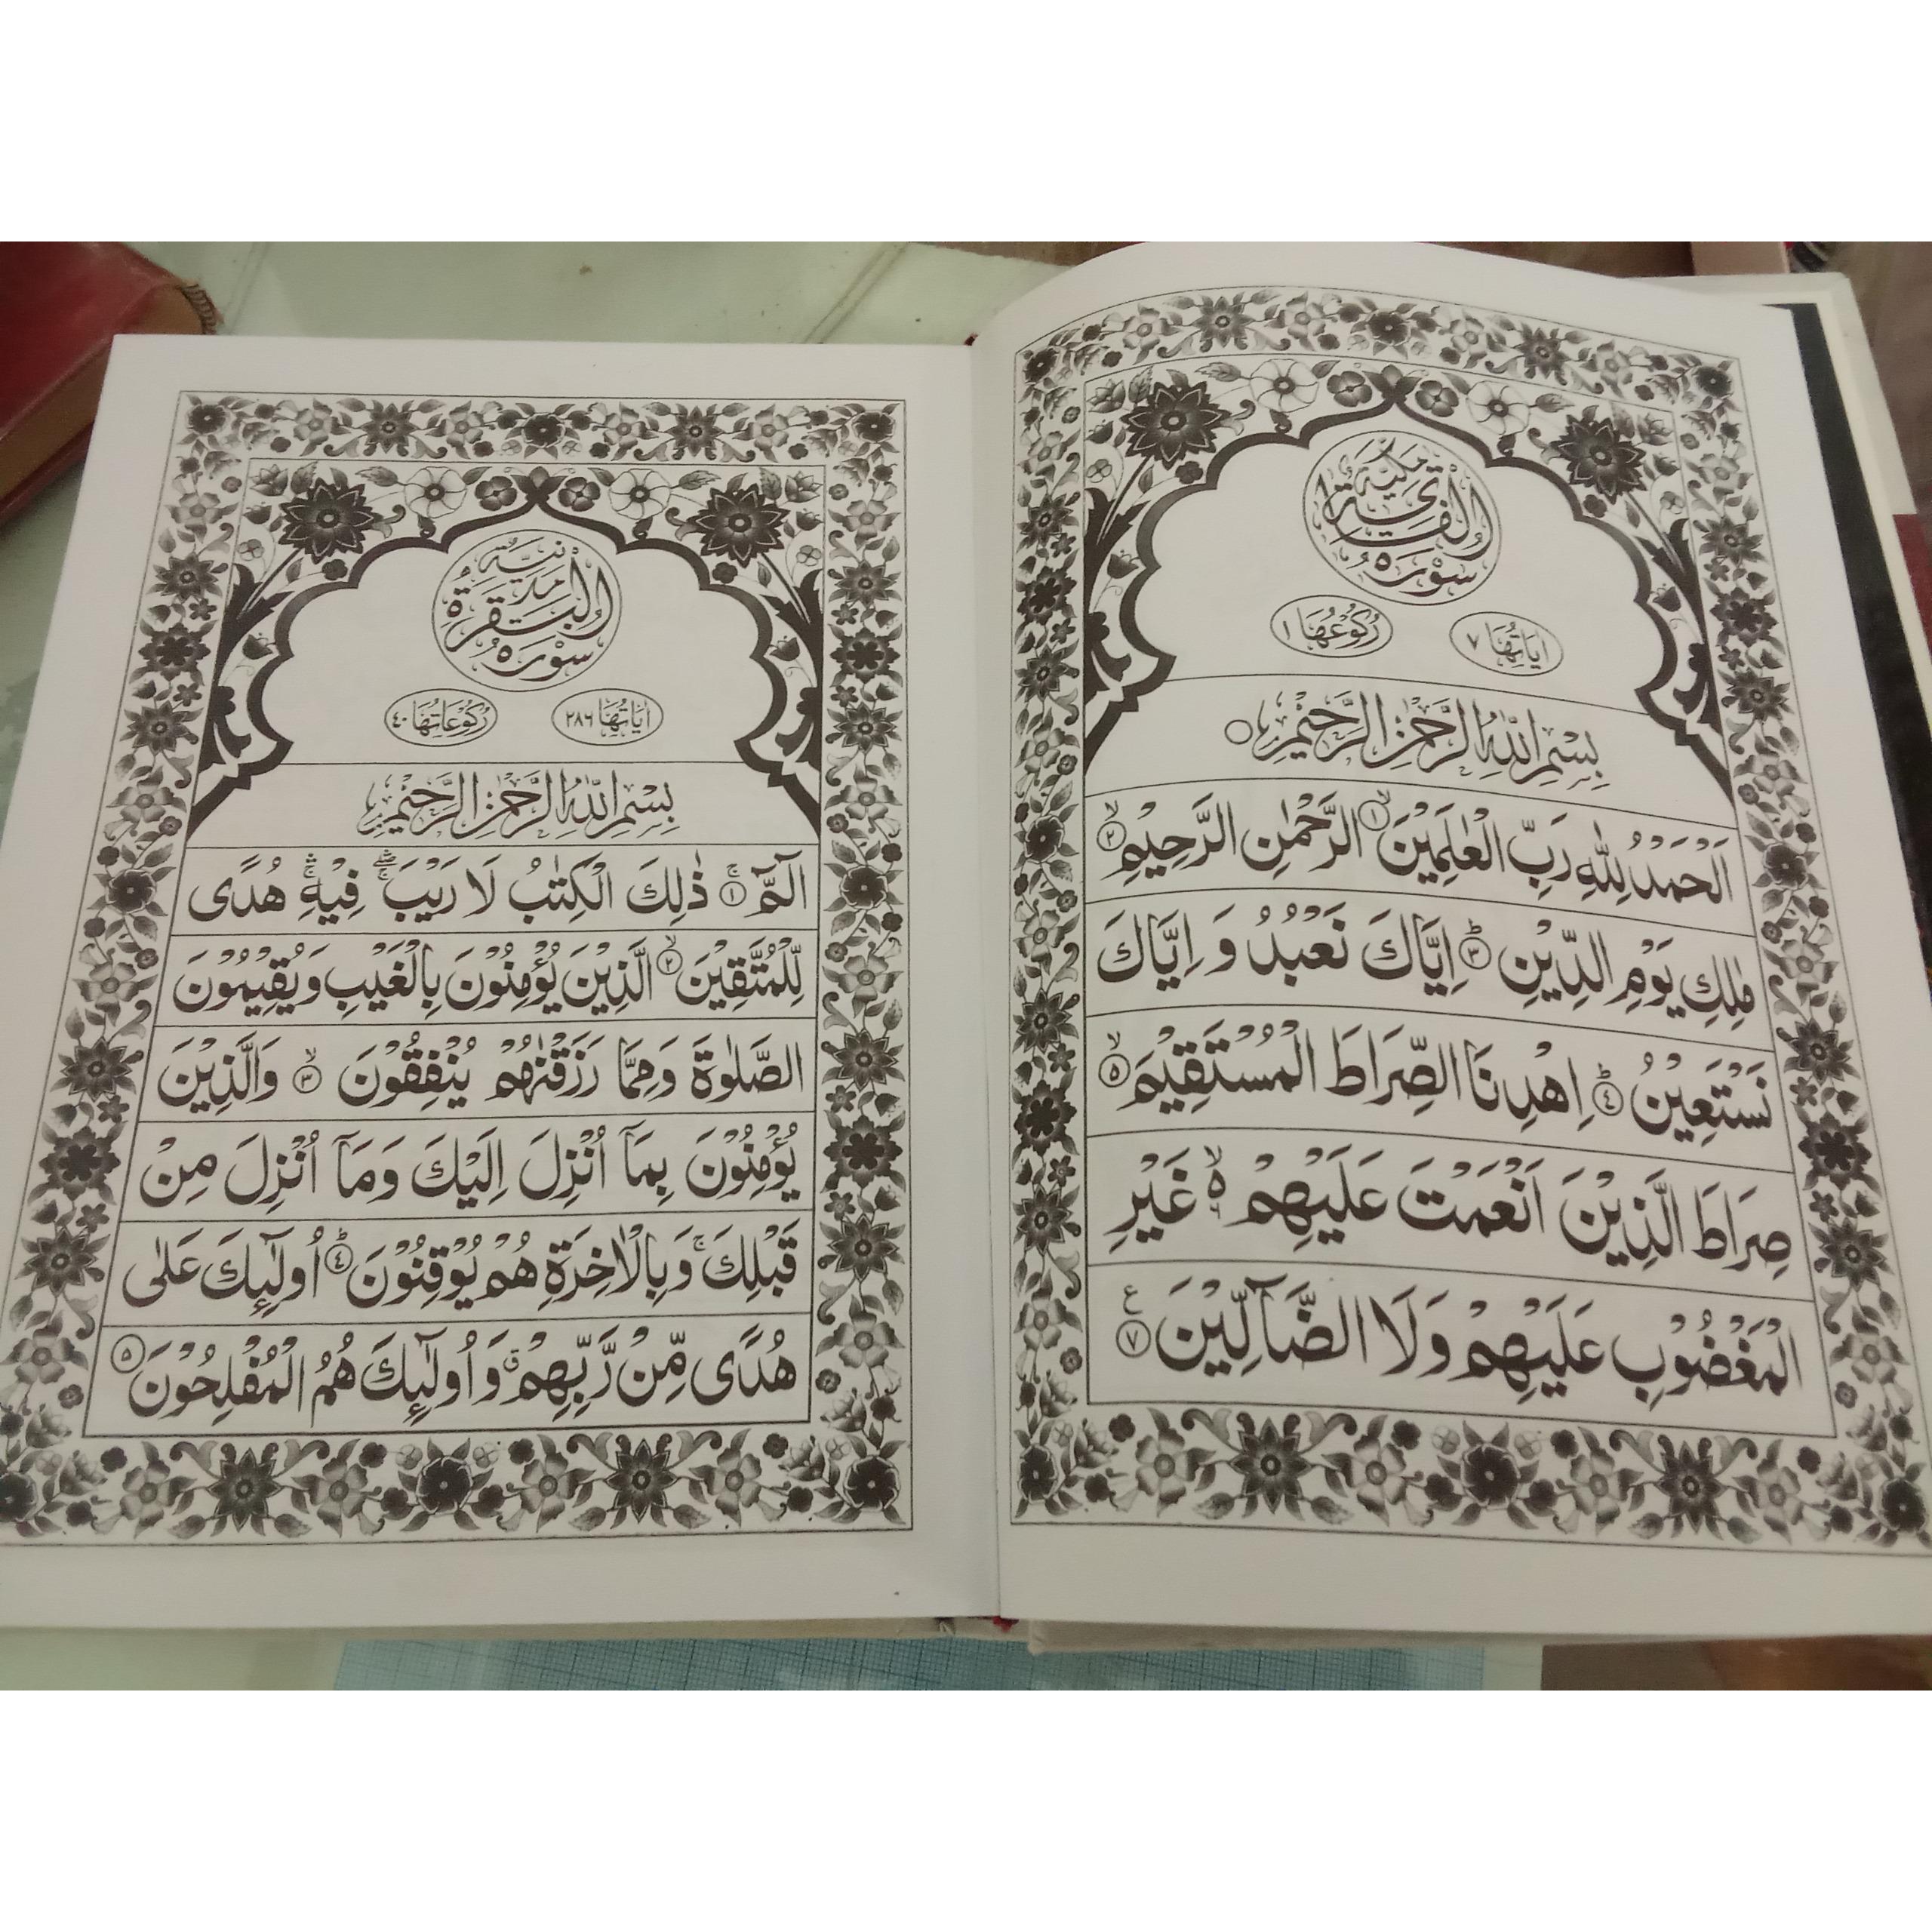 سُوْرَةُ الْفَاتِحَةِ مَكِّيَّةٌ
اٰیَاتُهَا ٧
رُكُوْعُهَا ١
بِسْمِ اللّٰهِ الرَّحْمٰنِ الرَّحِيْمِ ○
اَلْحَمْدُ لِلّٰهِ رَبِّ الْعٰلَمِيْنَ ۙ﴿١﴾ الرَّحْمٰنِ الرَّحِيْمِ ۙ﴿٢﴾
مٰلِكِ يَوْمِ الدِّيْنِ ؕ﴿٣﴾ اِيَّاكَ نَعْبُدُ وَ اِيَّاكَ
نَسْتَعِيْنُ ؕ﴿٤﴾ اِهْدِنَا الصِّرَاطَ الْمُسْتَقِيْمَ ۙ﴿٥﴾
صِرَاطَ الَّذِيْنَ اَنْعَمْتَ عَلَيْهِمْ ۙ۬ۦ غَيْرِ
الْمَغْضُوْبِ عَلَيْهِمْ وَلَا الضَّآلِّيْنَ ﴿٧﴾ ع
سُوْرَةُ الْبَقَرَةِ مَدَنِيَّةٌ
اٰيَاتُهَا ٢٨٦
رُكُوْعَاتُهَا ٤٠
بِسْمِ اللّٰهِ الرَّحْمٰنِ الرَّحِيْمِ
الٓمّٓ ۚ﴿١﴾ ذٰلِكَ الْكِتٰبُ لَا رَيْبَ ۛۚ فِيْهِ ۛۚ هُدًى
لِّلْمُتَّقِيْنَ ۙ﴿٢﴾ الَّذِيْنَ يُؤْمِنُوْنَ بِالْغَيْبِ وَيُقِيْمُوْنَ
الصَّلٰوةَ وَمِمَّا رَزَقْنٰهُمْ يُنْفِقُوْنَ ۙ﴿٣﴾ وَالَّذِيْنَ
يُؤْمِنُوْنَ بِمَآ اُنْزِلَ اِلَيْكَ وَمَآ اُنْزِلَ مِنْ
قَبْلِكَ ۚ وَبِالْاٰخِرَةِ هُمْ يُوْقِنُوْنَ ؕ﴿٤﴾ اُولٰٓئِكَ عَلٰى
هُدًى مِّنْ رَّبِّهِمْ ۗ وَاُولٰٓئِكَ هُمُ الْمُفْلِحُوْنَ ﴿٥﴾